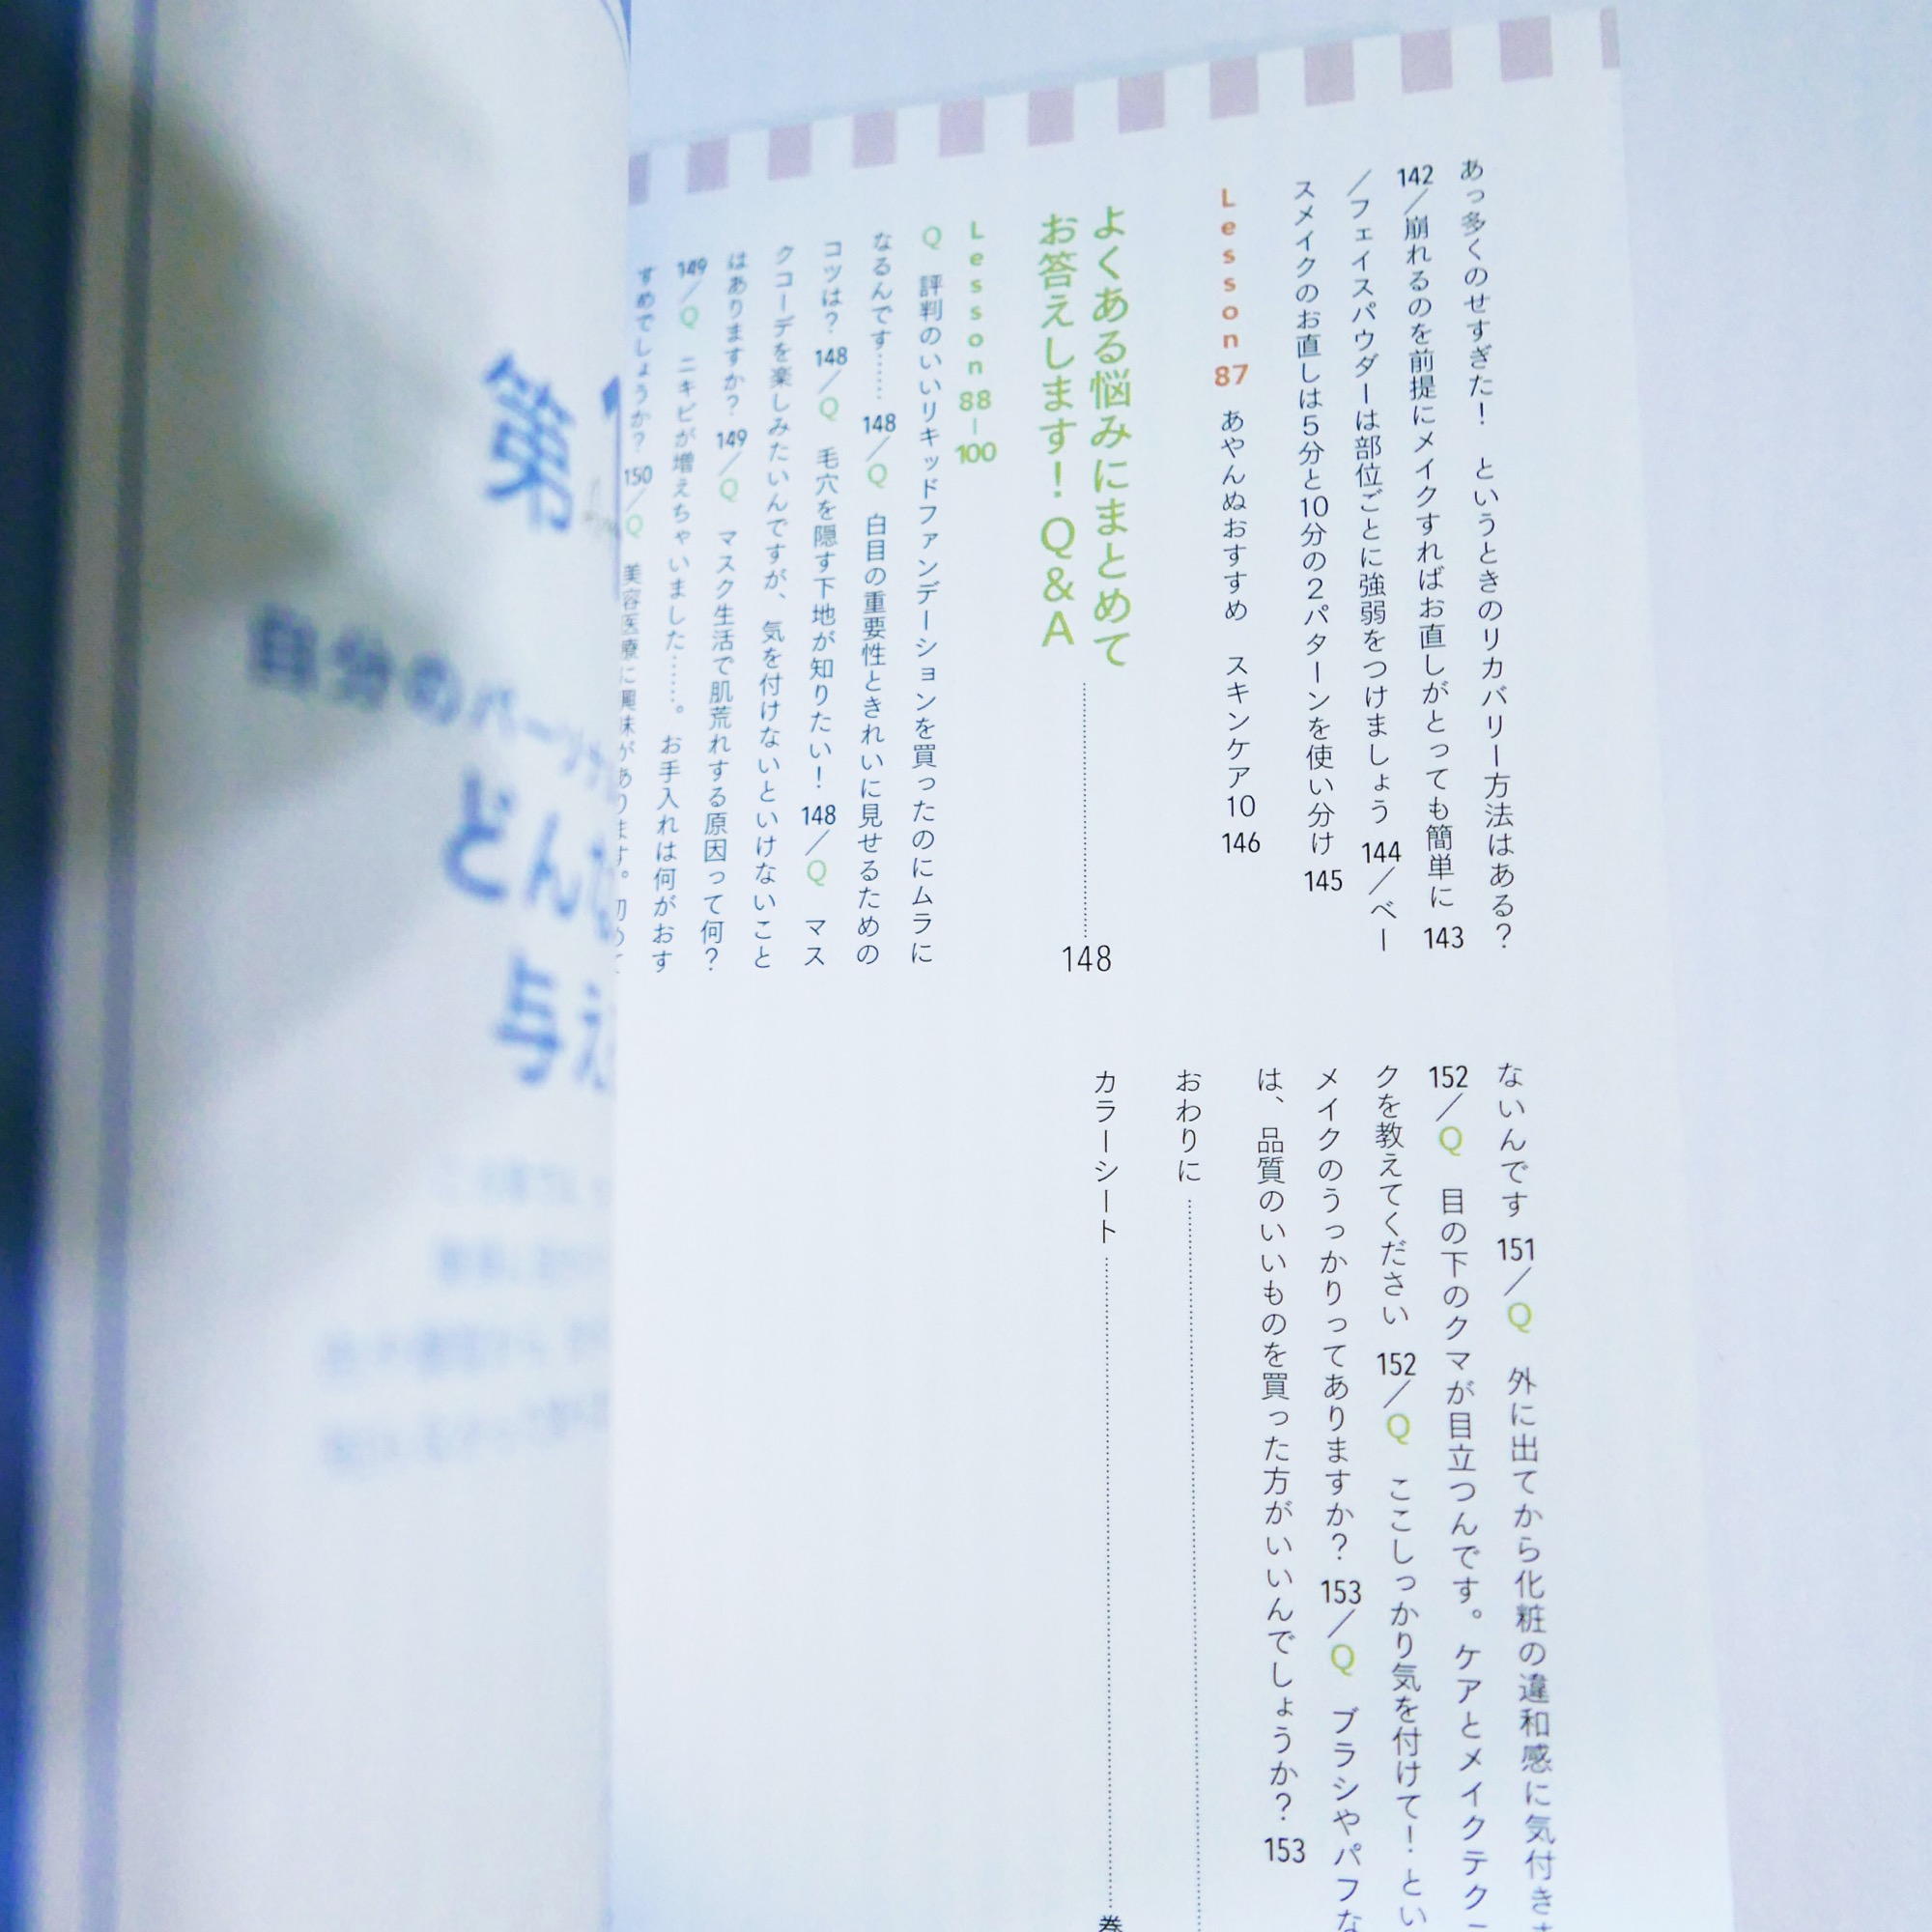 あっ多くのせすぎた！　というときのリカバリー方法はある？
142／崩れるのを前提にメイクすればお直しがとっても簡単に 143
／フェイスパウダーは部位ごとに強弱をつけましょう 144／ベー
スメイクのお直しは5分と10分の2パターンを使い分け 145
Lesson 87 あやんぬおすすめ　スキンケア10 146
よくある悩みにまとめて
お答えします！Q&A 148
Lesson 88-100
Q　評判のいいリキッドファンデーションを買ったのにムラに
なるんです…… 148／Q　白目の重要性ときれいに見せるための
コツは？ 148／Q　毛穴を隠す下地が知りたい！ 148／Q　マス
クコーデを楽しみたいんですが、気を付けないといけないこと
はありますか？ 149／Q　マスク生活で肌荒れする原因って何？
149／Q　ニキビが増えちゃいました……。お手入れは何がおす
すめでしょうか？ 150／Q　美容医療に興味があります。初めて
ないんです 151／Q　外に出てから化粧の違和感に気付き
152／Q　目の下のクマが目立つんです。ケアとメイクテク
クを教えてください 152／Q　ここしっかり気を付けて！とい
メイクのうっかりってありますか？ 153／Q　ブラシやパフな
は、品質のいいものを買った方がいいんでしょうか？ 153
おわりに
カラーシート 巻
第1
自分のパーソナル
どんな
与え